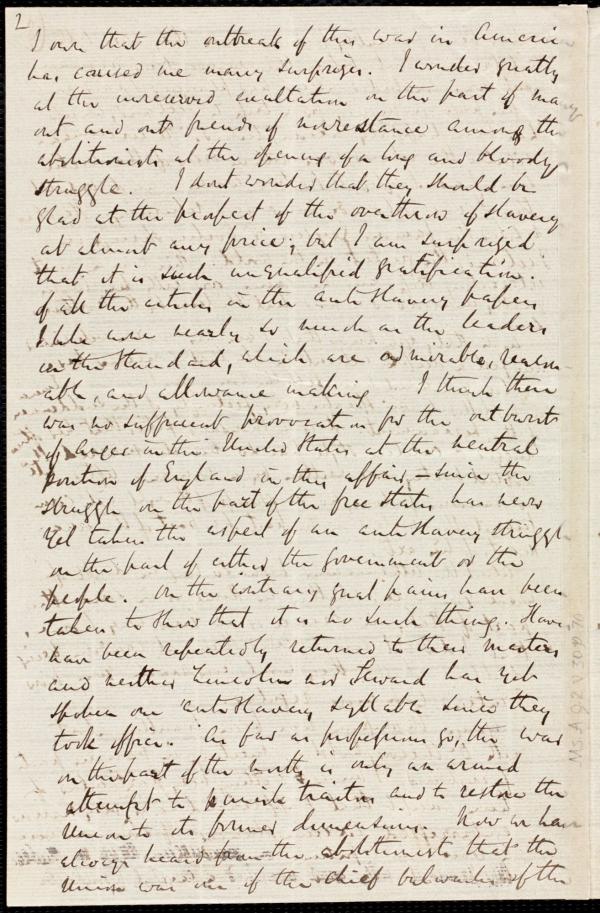 2
I own that the outbreak of this war in America
has caused me many surprizes. I wonder greatly
at the unreserved exultation on the part of many
out and out friends of nonresistance among the
abolitionists at the opening of a long and bloody
struggle. I dont wonder that they should be
glad at the prospect of the overthrow of slavery
at almost any price; but I am surprized
that it is such unqualified gratification.
Of all the articles in the anti slavery papers
I like none nearly so much as the leaders
in the Standard, which are admirable, reason
able, and allowance making. I think there
was no sufficient provocation for the outburst
of anger in the United States at the neutral
position of England in this affair, – since the
struggle on the part of the free states has never
yet taken the aspect of an anti slavery struggle
on the part of either the government or the
people. On the contrary great pains have been
taken to show that it is no such thing. Slaves
have been repeatedly returned to their masters
and neither Lincoln nor Seward has yet
spoken one anti slavery syllable since they
took office. As far as professions go, the war
on the part of the north is only an armed
attempt to punish traitors and to restore the
Union to its former dimensions. Now we have
always heard from the abolitionists that the
Union was one of the chief bulwarks of the
MS A 9.2 v.30